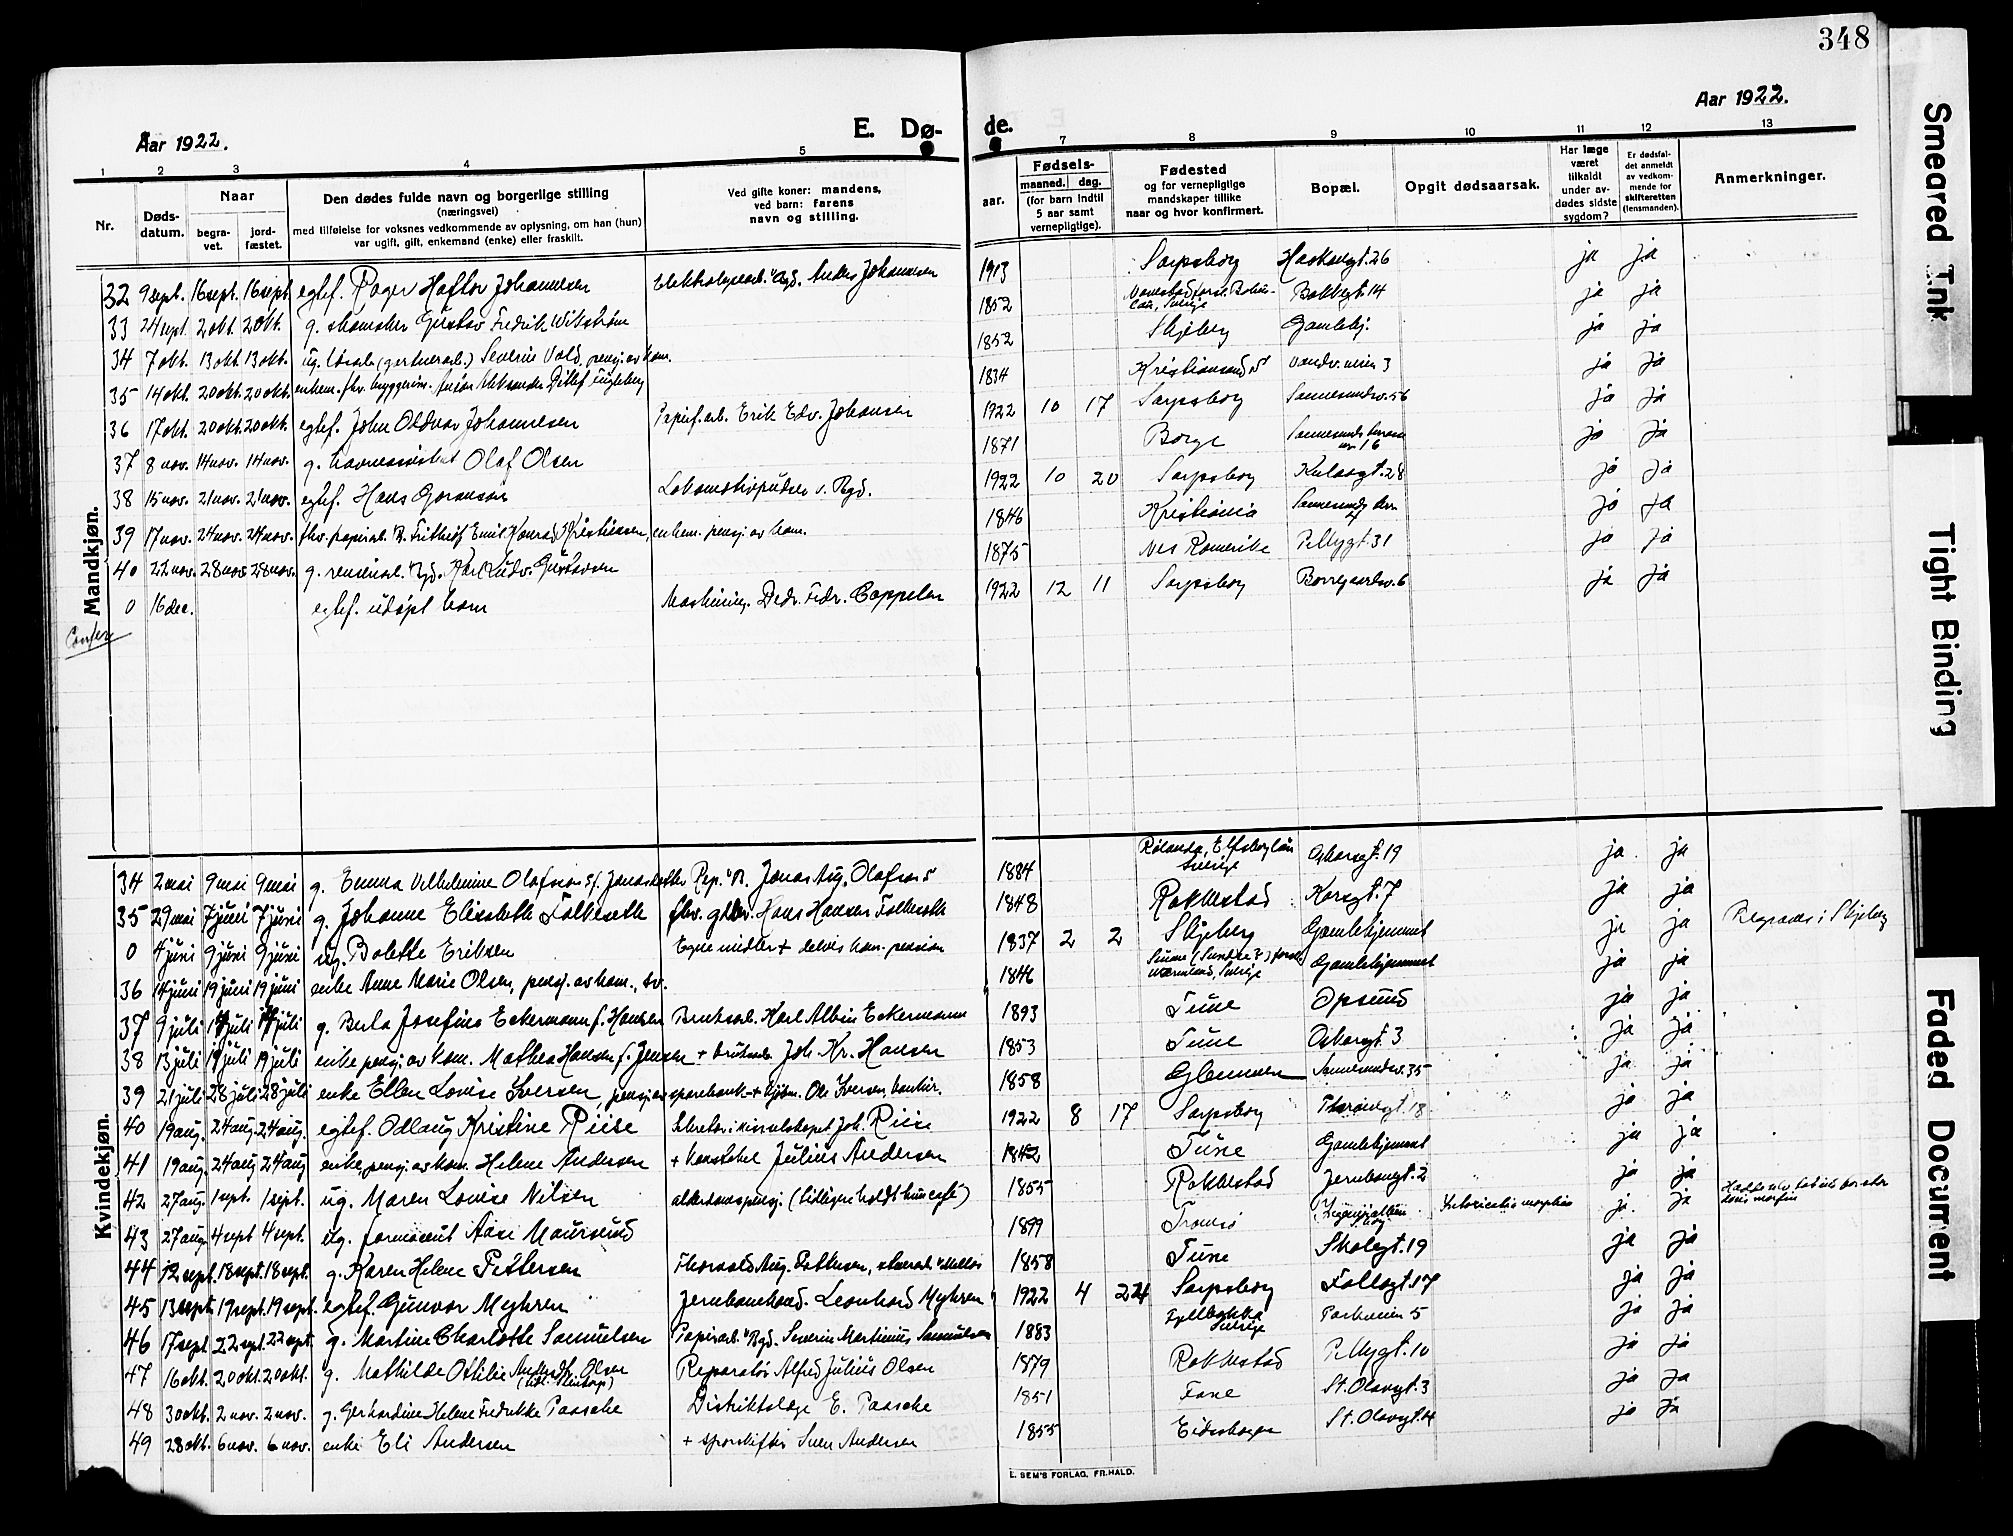 348
Aar 1922.
E. Dø-
de.
Aar 1922.
1 2 3 4 5
7 8 9 10 11 12 13
Nr.
Døds-
datum.
Naar
begra-
vet.
jord-
fæstet.
Den dødes fulde navn og borgerlige stilling
(næringsvei)
med tilføielse for voksnes vedkommende av oplysning, om han (hun)
var ugift, gift, enkemand (enke) eller fraskilt.
Ved gifte koner: mandens,
ved barn: farens
navn og stilling.
Fødsels-
aar.
maaned.
dag.
(for barn indtil
5 aar samt
vernepligtige).
Fødested
og for vernepligtige
mandskaper tillike
naar og hvor konfirmert.
Bopæl.
Opgit dødsaarsak.
Har læge
været
tilkaldt
under av-
dødes sidste
sygdom?
Er dødsfal-
det anmeldt
av vedkom-
mende for
skifteretten
(lensmanden).
Anmerkninger.
Mandkjøn.
32 9 sept. 16 sept. 16 sept. egtef. Roger Haftor Johannesen Anders Johannesen 1913 Sarpsborg 26 ja ja
33 24 sept. 2 okt. 2 okt. g. skomaker Gustav Fredrik Wikstrøm 1852 Sverige 14 ja ja
34 7 okt. 13 okt. 13 okt. ug. Severin Vold, pensj. av kom. 1852 Skjeberg Gamlehj. ja ja
35 14 okt. 20 okt. 20 okt. enkem. fhv. Ditlef 1834 Kristiansand S 3 ja ja
36 17 okt. 20 okt. 20 okt. egtef. John Oldvar Johannesen Papirf.arb. Erik Edv. Johansen 1922 10 17 Sarpsborg Sannesundsv. 56 ja ja
37 8 nov. 14 nov. 14 nov. g. havneassistent Olaf Olsen 1871 Borge 16 ja ja
38 15 nov. 21 nov. 21 nov. egtef. Hans Gøransen Lokomotivpudser v. Bgd. 1922 10 20 Sarpsborg Kulaasgt. 28 ja ja
39 17 nov. 24 nov. 24 nov. fhv. papirarb. Frithjof Emil Konrad Kristiansen, enkem. pensj. av kom. 1846 Kristiania ja ja
40 22 nov. 28 nov. 28 nov. g. Bgd. Karl Ludv. Gustavsen 1875 Nes Romerike Pellygt. 31 ja ja
0 16 dec. egtef. udøpt barn Maskining. Didr. Fedr. Cappelen 1922 12 11 Sarpsborg Borregaardsv. 6 ja ja
Kvindekjøn.
34 2 mai 9 mai 9 mai g. Emma Vilhelmine Olafsson f. Jonasdotter Rep. Jonas Aug. Olafsson 1884 Rølanda, Elfsborg län Sverige Oskarsgt. 19 ja ja
35 29 mai 7 juni 7 juni g. Johanne Elisabeth Folkeseth fhv. Hans Hansen Folkeseth 1848 Rakkestad Korsgt. 7 ja ja
0 4 juni 9 juni 9 juni ug. Bolette Eriksen Egne midler + delvis kom. pension 1837 2 2 Skjeberg Gamlehjemmet ja ja Begraves i Skjeberg
36 14 juni 19 juni 19 juni enke Anne Marie Olsen, pensj. av kom., sv. 1846 Sverige Gamlehjemmet ja ja
37 9 juli 14 juli 14 juli g. Berta Josefine Eckermann f. Hansen Bruksarb. Karl Albin Eckermann 1893 Tune Opsund ja ja
38 13 juli 19 juli 19 juli enke pensj. av kom. Mathea Hansen f. Jensen + bruksarb. Joh. Kr. Hansen 1853 Tune Oskarsgt. 3 ja ja
39 21 juli 28 juli 28 juli enke Ellen Lovise Iversen, pensj. av sparebank + kjøbm. Ole Iversen, 1858 Glemmen Sannesundsv. 35 ja ja
40 19 aug. 24 aug. 24 aug. egtef. Odlaug Kristine Riise Sekretær i Joh. Riise 1922 8 17 Sarpsborg 18 ja ja
41 19 aug. 24 aug 24 aug enke, pensj. av kom. Helene Andersen + konstabel Julius Andersen 1842 Tune Gamlehjemmet ja ja
42 27 aug. 1 sept. 1 sept. ug. Maren Lovise Nilsen alderdomspensj. (tidligere holdt hun café) 1855 Rakkestad Jernbanegt. 2 ja ja
43 27 aug. 4 sept 4 sept. ug. Aase Maursund 1899 Tromsø ja. ja
44 12 sept. 18 sept. 18 sept. g. Karen Helene Pettersen Thorvald Aug. Pettersen, 1858 Tune Skolegt. 19 ja ja
45 13 sept. 19 sept. 19 sept. egtef. Gunvor Myhren Jernbanekond. Leonhard Myhren 1922 4 24 Sarpsborg Follogt. 17 ja ja
46 17 sept 22 sept. 22 sept. g. Martine Charlotte Samuelsen Papirarb. Bgd. Severin Martinius Samuelsen 1883 Sverige Parkveien 5 ja ja
47 16 okt. 20 okt. 20 okt. g. Mathilde Ottilie Olsen Reparatør Alfred Julius Olsen 1879 Rakkestad Pellygt. 10 ja ja
48 30 okt. 2 nov. 2 nov. g. Gerhardine Helene Fredrikke Paasche Distriktslæge E. Paasche 1851 Fane St. Olavsgt. 3 ja ja
49 28 okt. 6 nov. 6 nov. enke Eli Andersen + sporskifter Sven Andersen 1855 Eidsberg St. Olavsgt. 4 ja ja
E. SEM'S FORLAG, FR.HALD.
Smeared Ink
Tight Binding
Faded Document